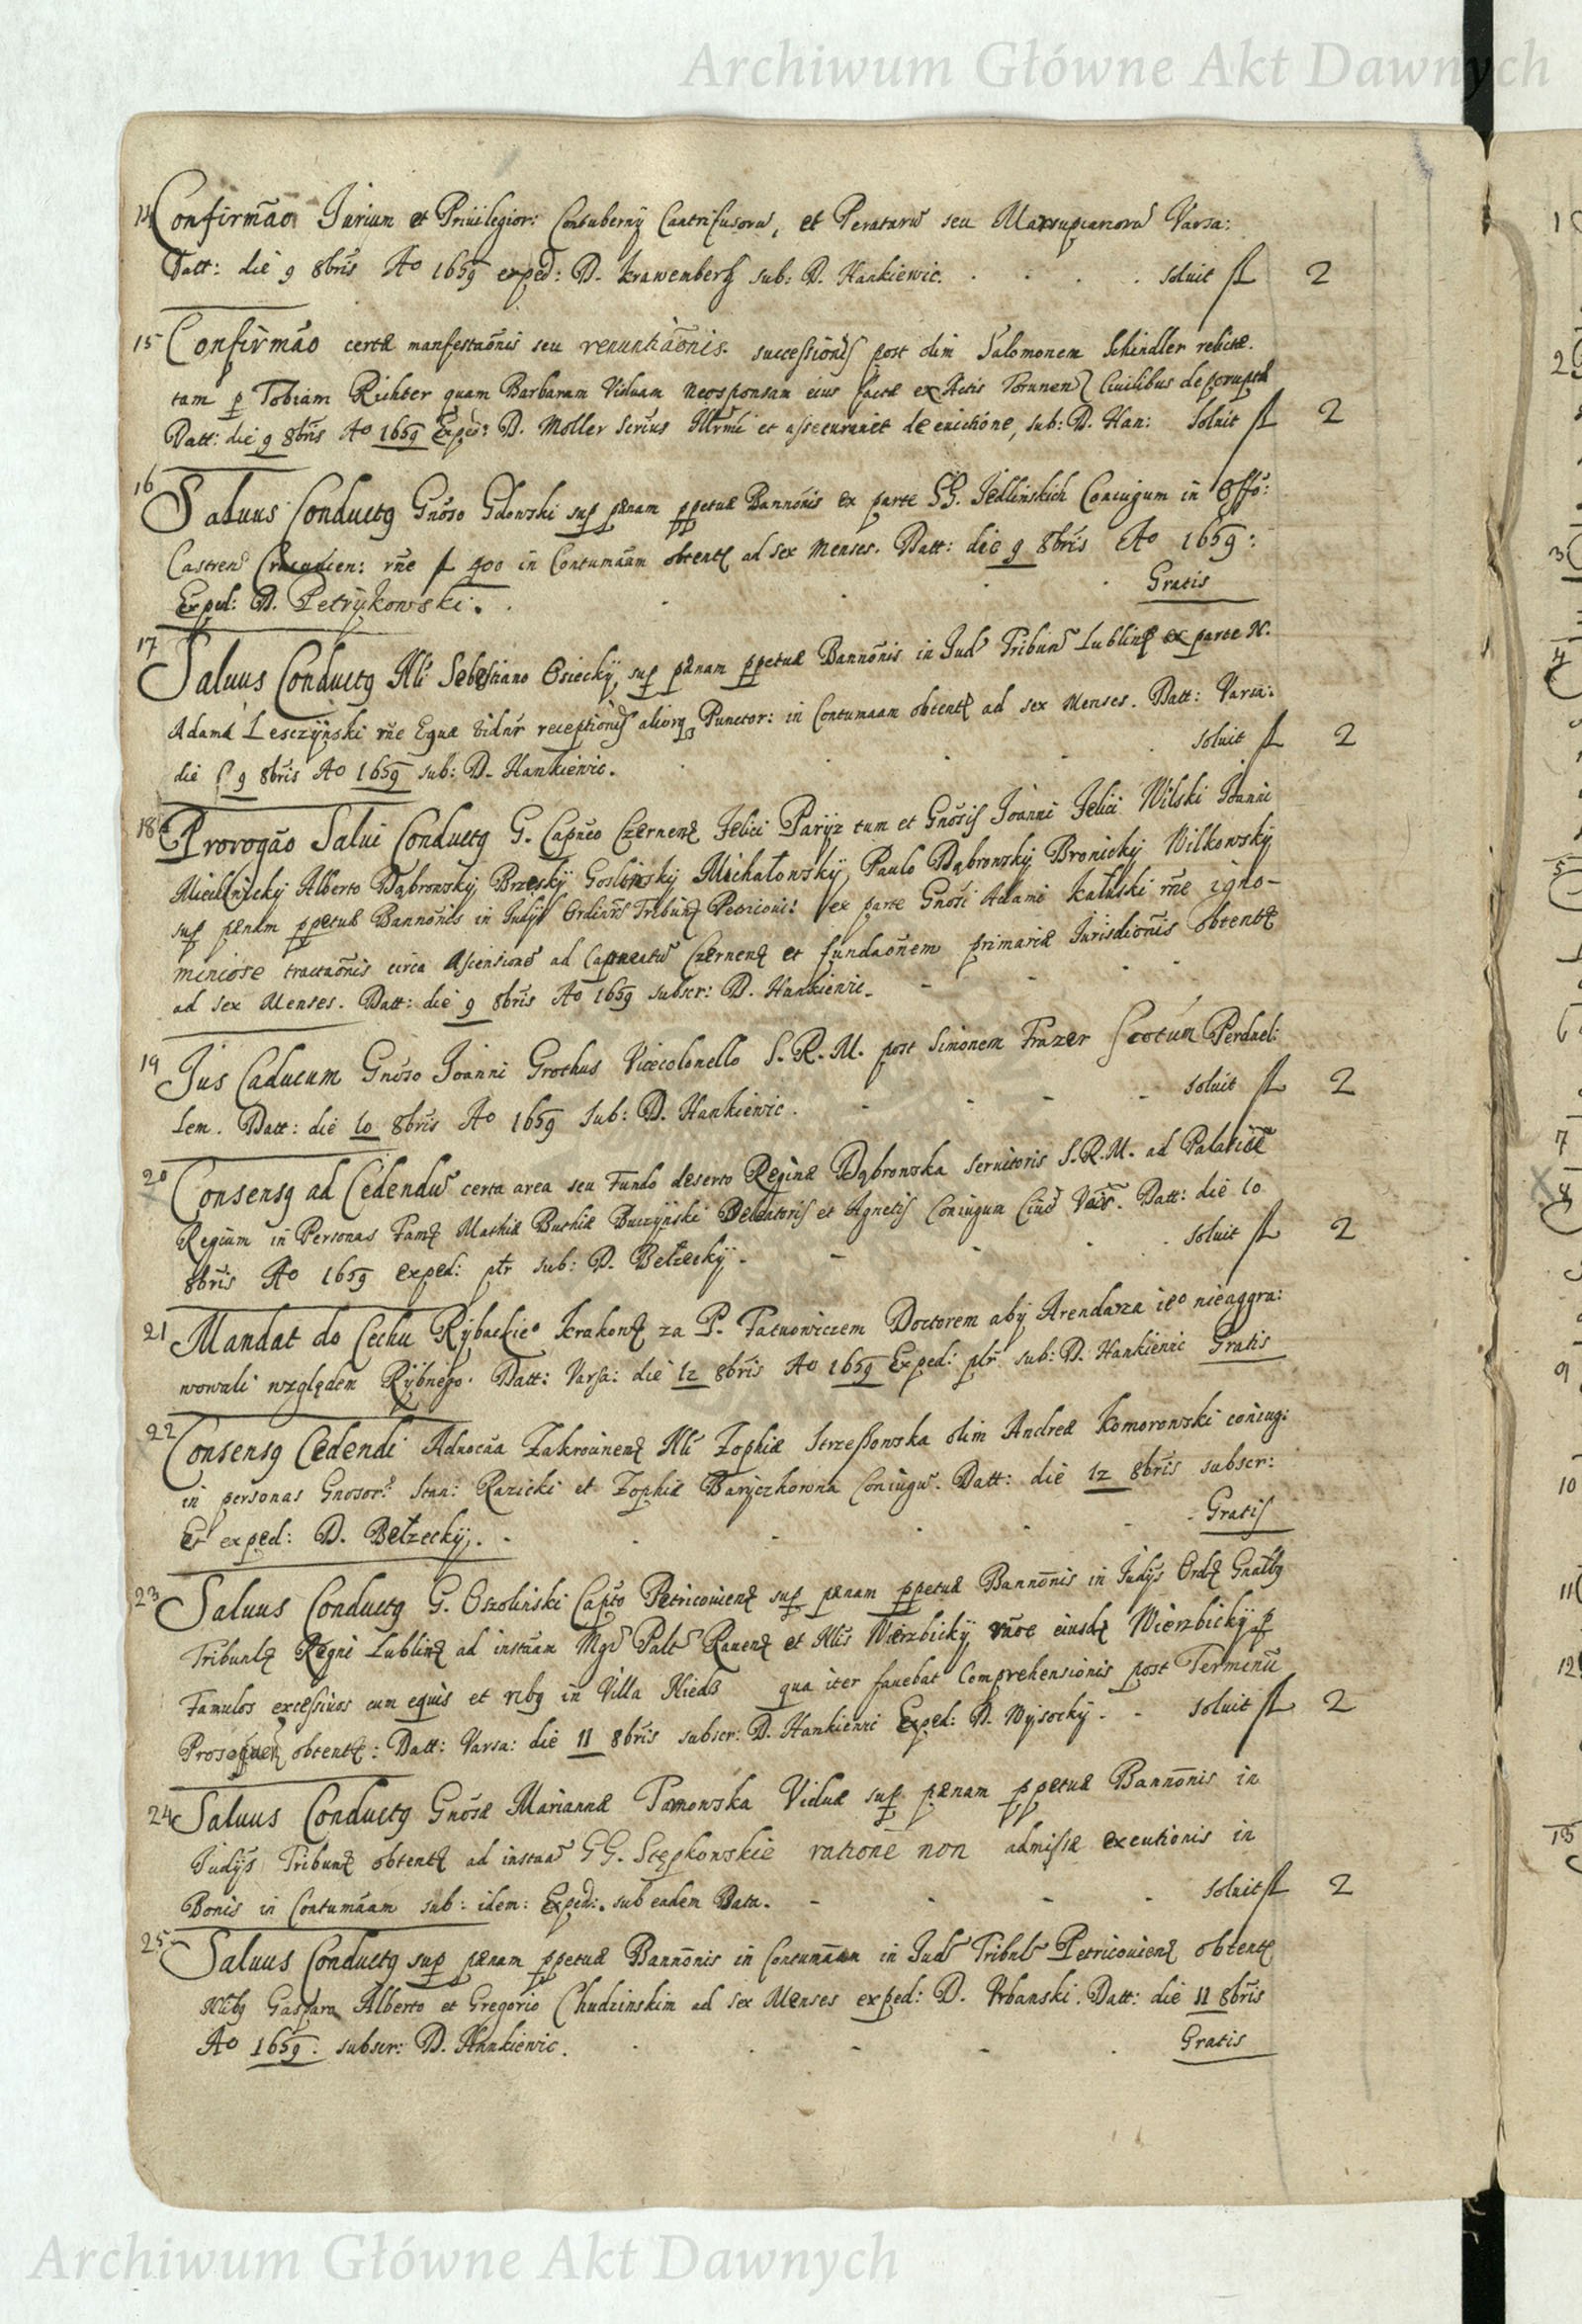 Archiwum Główne Akt Dawnych
14 Confirmao Jurium et Priuilegior: Contubernij et Peratarũ seu Marsupiariorũ Varsa:
Datt: die 9 8bris Ao 1659 exped: D. Krawemberg sub: D. Hankiewic. soluit fl 2
15 Confirmao certæ manfestaõnis seu renuntiaõnis successionis post olim Salomonem Schindler relictæ.
tam p Tobiam Richter quam Barbaram Viduam neosponsam eius factæ ex Actis Torunen Ciuilibus
Datt: die 9 8bris Ao 1659 Exped: D. Moller et de euictione, sub: D. Han: soluit fl 2
16 Saluus Conductq Gnoso Gdowski sup pænam ppetuæ Bannõnis ex parte GG. Jedlinskich Coniugum in Offo:
Castren rñe fl 400 in Contumaam obtent ad sex Menses. Datt: die 9 8bris Ao 1659:
Exped: D. Petrykowski. Gratis
17 Saluus Conductq Nli Sebestiano Osiecky, sup pænam ppetuæ Bannõnis in Jud Tribun Lublin ex parte N.
Adami Lesczynski rñe Equæ receptionis aliorq Punctor: in Contumaam obtent ad sex Menses. Datt: Varsa:
die 9 8bris Ao 1659 sub: D. Hankiewic. soluit fl 2
18 Prorogão Salui Conductq G. Capneo Czernen Felici Paryz tum et Gnosis Joanni Felici Wilski Joanni
Alberto Dąbrowsky, Brzesky Michałowsky, Paulo Dąbrowsky Bronicky Wilkowsky
sup pænam ppetuæ Bannõnis in Judys Ordinar Tribun Petricoui: ex parte Gnosi Adami Kałuski rñe igno-
miniose tractaõnis circa Ascensionẽ ad Capneatũ Czernen et fundaõnem primariæ Jurisdionis obtent
ad sex Menses. Datt: die 9 8bris Ao 1659 subscr: D. Hankiewic.
19 Jus Caducum Gnoso Joanni Grothus Vicecolonello S. R. M. post Simonem Frazer Scotum Perduel:
lem. Datt: die 10 8bris Ao 1659 sub: D. Hankiewic. soluit fl 2
20 Consensq ad Cedendũ certa area seu Fundo deserto Reginæ Dąbrowska seruitoris S.R.M. ad Palatiũ
Regium in Personas Fam Mathiæ Buczynski et Agnetis Coniugum Datt: die 10
8bris Ao 1659 exped: ptr sub: D. Bełzecky. soluit fl 2
21 Mandat do Cechu Rybackieo Krakow za P. Fatuowiczem Doctorem aby Arendarza ieo nieaggra:
wowali względem Rybnego. Datt: Varsa: die 12 8bris Ao 1659 Exped: ptr sub: D. Hankiewic Gratis
22 Consensq Cedendi Aduocãa Zakroimen Nli Zophiæ Strzeßowska olim Andreæ Komorowski coniug:
in personas Gnosor Stan: Razicki et Zophiæ Baryczkowna Coniugũ. Datt: die 12 8bris subscr:
Et exped: D. Bełzecky. Gratis
23 Saluus Conductq G. Oszolinski Capto Petricouien sup pænam ppetuæ Bannõnis in Judys Ord Gnalbq
Tribunl Regni Lublin ad instãam Mgi Palt Rauen et Nlis Wierzbicky rñoe eiusd Wierzbicky p
Famulos excessiuos cum equis et rebq in Villa qua iter faciebat Comprehensionis post Terminũ
obtent: Datt: Varsa: die 11 8bris subscr: D. Hankiewic Exped: D. Wysocky. soluit fl 2
24 Saluus Conductq Gnosæ Mariannæ Viduæ sup pænam ppetuæ Bannõnis in
Judys Tribun obtent ad instaã GG. Stępkowskie ratione non admissæ executionis in
Bonis in Contumãam sub: idem: Exped: sub eadem Data. soluit fl 2
25 Saluus Conductq sup pænam ppetuæ Bannõnis in Contumãam in Jud Tribul Petricouien obtent
Nlibq Gaspara Alberto et Gregorio Chudzinskim ad sex Menses exped: D. Vrbanski. Datt: die 11 8bris
Ao 1659. subscr: D. Hankiewic. Gratis
Archiwum Główne Akt Dawnych